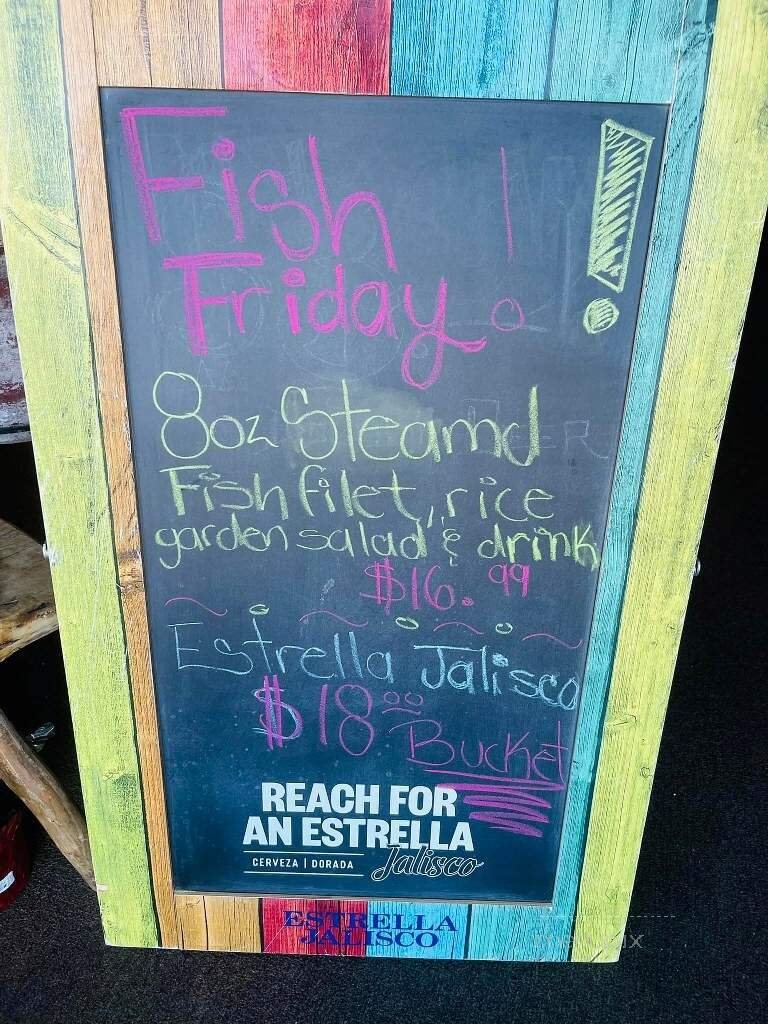 Fish !
Friday!
8oz Steamd
Fish filet, rice
garden salad & drink
$16.99
Estrella Jalisco
$18.00
Bucket
REACH FOR
AN ESTRELLA
CERVEZA | DORADA Jalisco
ESTRELLA
JALISCO